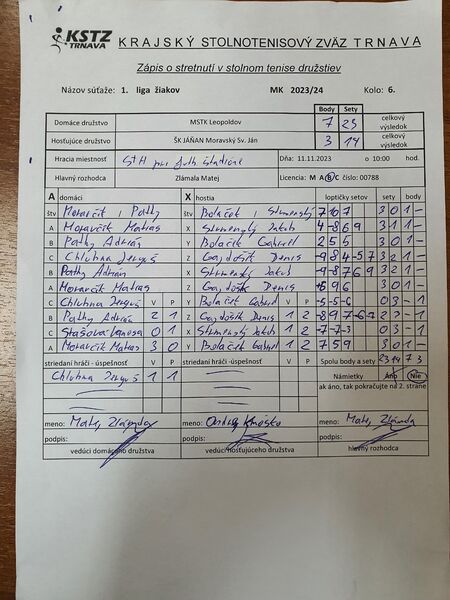 KSTZ TRNAVA KRAJSKÝ STOLNOTENISOVÝ ZVÄZ TRNAVA
Zápis o stretnutí v stolnom tenise družstiev
Názov súťaže: 1. liga žiakov MK 2023/24 Kolo: 6.
Body Sety
Domáce družstvo MSTK Leopoldov 7 23 celkový výsledok
Hosťujúce družstvo ŠK JÁŇAN Moravský Sv. Ján 3 14 celkový výsledok
Hracia miestnosť Dňa: 11.11.2023 o 10:00 hod.
Hlavný rozhodca Zlámala Matej Licencia: M A B C číslo: 00788
A domáci X hostia loptičky setov sety body
štv Moravčík, Pathy štv Bolaček, 7 10 7 3 0 1 -
A Moravčík Matias X Jakub -4 -8 6 9 3 1 1 -
B Pathy Adrián Y Bolaček Gabriel 2 5 5 3 0 1 -
C Chlubna Z Gajdošík Denis -9 8 4 -5 7 3 2 1 -
B Pathy Adrián X Jakub -9 8 7 6 9 3 2 1 -
A Moravčík Matias Z Gajdošík Denis 6 9 6 3 0 1 -
C Chlubna V P Y Bolaček Gabriel V P -5 -5 -6 0 3 - 1
B Pathy Adrián 2 1 Z Gajdošík Denis 1 2 2 3 - 1
C 0 1 X Jakub 1 2 -7 -7 -3 0 3 - 1
A Moravčík Matias 3 0 Y Bolaček Gabriel 1 2 7 5 9 3 0 1 -
striedaní hráči - úspešnosť V P striedaní hráči - úspešnosť V P Spolu body a sety 23 14 7 3
Chlubna 1 1 Námietky Áno Nie
ak áno, tak pokračujte na 2. strane
meno: Matej Zlámala meno: Ondrej meno: Matej Zlámala
podpis: podpis: podpis:
vedúci domáceho družstva vedúci hosťujúceho družstva hlavný rozhodca